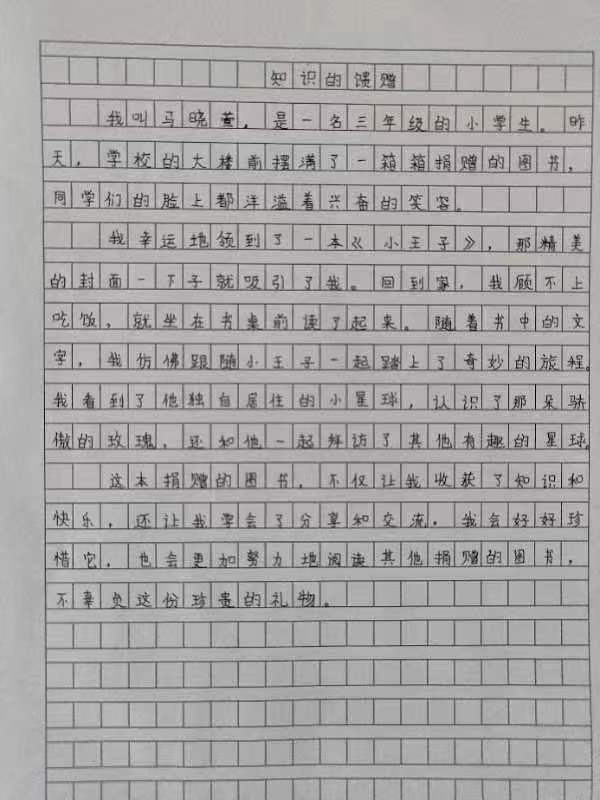 知识的馈赠
我叫马晓萱，是一名三年级的小学生。昨
天，学校的大楼前摆满了一箱箱捐赠的图书，
同学们的脸上都洋溢着兴奋的笑容。
我幸运地领到了一本《小王子》，那精美
的封面一下子就吸引了我。回到家，我顾不上
吃饭，就坐在书桌前读了起来。随着书中的文
字，我仿佛跟随小王子一起踏上了奇妙的旅程。
我看到了他独自居住的小星球，认识了那朵骄
傲的玫瑰，还和他一起拜访了其他有趣的星球。
这本捐赠的图书，不仅让我收获了知识和
快乐，还让我学会了分享和交流，我会好好珍
惜它，也会更加努力地阅读其他捐赠的图书，
不辜负这份珍贵的礼物。